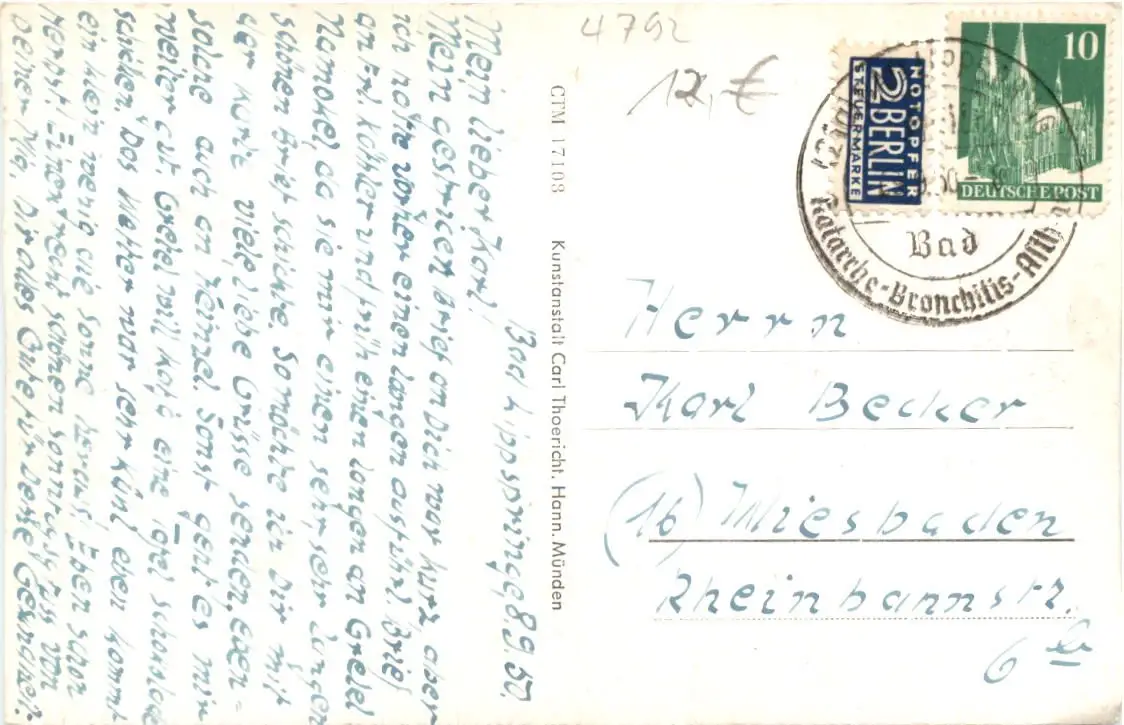 Bad Lippspringe, 8.9.50.
Mein lieber Karl!
Mein gestriger Brief an Dich war kurz, aber
ich hatte vorher einen langen ausführl. Brief
an Frl. Köhler und früh einen langen an Gretel
Hamokel, da sie mir einen sehr, sehr langen
schönen Brief schickte. So möchte ich Dir mit
der Karte viele, liebe Grüsse senden, eben-
solche auch an Heinzel. Sonst geht es mir
weiter gut. Gretel will Kaja eine Tafel Schokolade
schicken. Das Wetter war sehr kühl, eben kommt
ein klein wenig die Sonne heraus. Eben schon
Herbst. Einen recht schönen Sonntagsgruss von
Deiner Mia, Dir alles Gute für beste Gesundheit.
CTM 17108 Kunstanstalt Carl Thoericht, Hann. Münden
4792
12,- €
NOTOPFER
2 BERLIN
STEUERMARKE
10
DEUTSCHE POST
Bad
Katarrhe-Bronchitis-Asthma
Herrn
Karl Becker
(16) Wiesbaden
Rheinbahnstr.
6 b